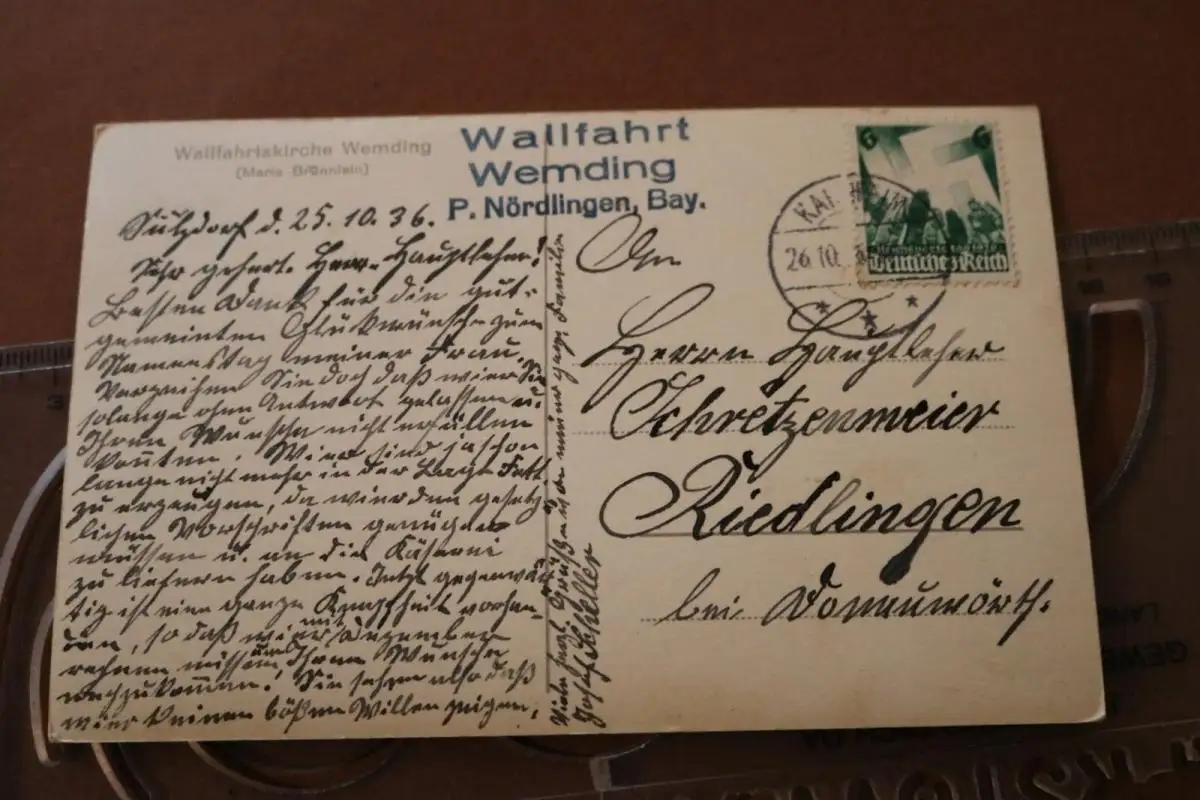 Wallfahrtskirche Wemding
(Maria Brünnlein)
Wallfahrt
Wemding
P. Nördlingen, Bay.
Sulzdorf d. 25.10.36.
Sehr geehrt. Herr Hauptlehrer!
Besten Dank für die gut-
gemeinten Glückwünsche zum
Namenstag meiner Frau.
Verzeihen Sie doch daß wier Sie
solange ohne Antwort gelassen u.
Ihren Wunsche nicht erfüllen
konnten. Wier sind ja schon
lange nicht mehr in der Lage Fett
zu erzeugen, da wier den gesetz
lichen Vorschriften genügen
müssen u. an die Käserei
zu liefern haben. Jetzt gegenwär
tig ist eine ganze Knappheit vorhan-
den, so daß wier mit Dezember
rechnen müssen um Ihren Wunsche
nachzukommen. Sie sehen also daß
wier keinen bößen Willen zeigen,
Viele herzl. Grüße von meiner ganz. Familie
Josef Scheller
KAI
26.10.
6
6
Deutsches Reich
An
Herrn Hauptlehrer
Schretzenmeier
Riedlingen
bei Donauwörth.